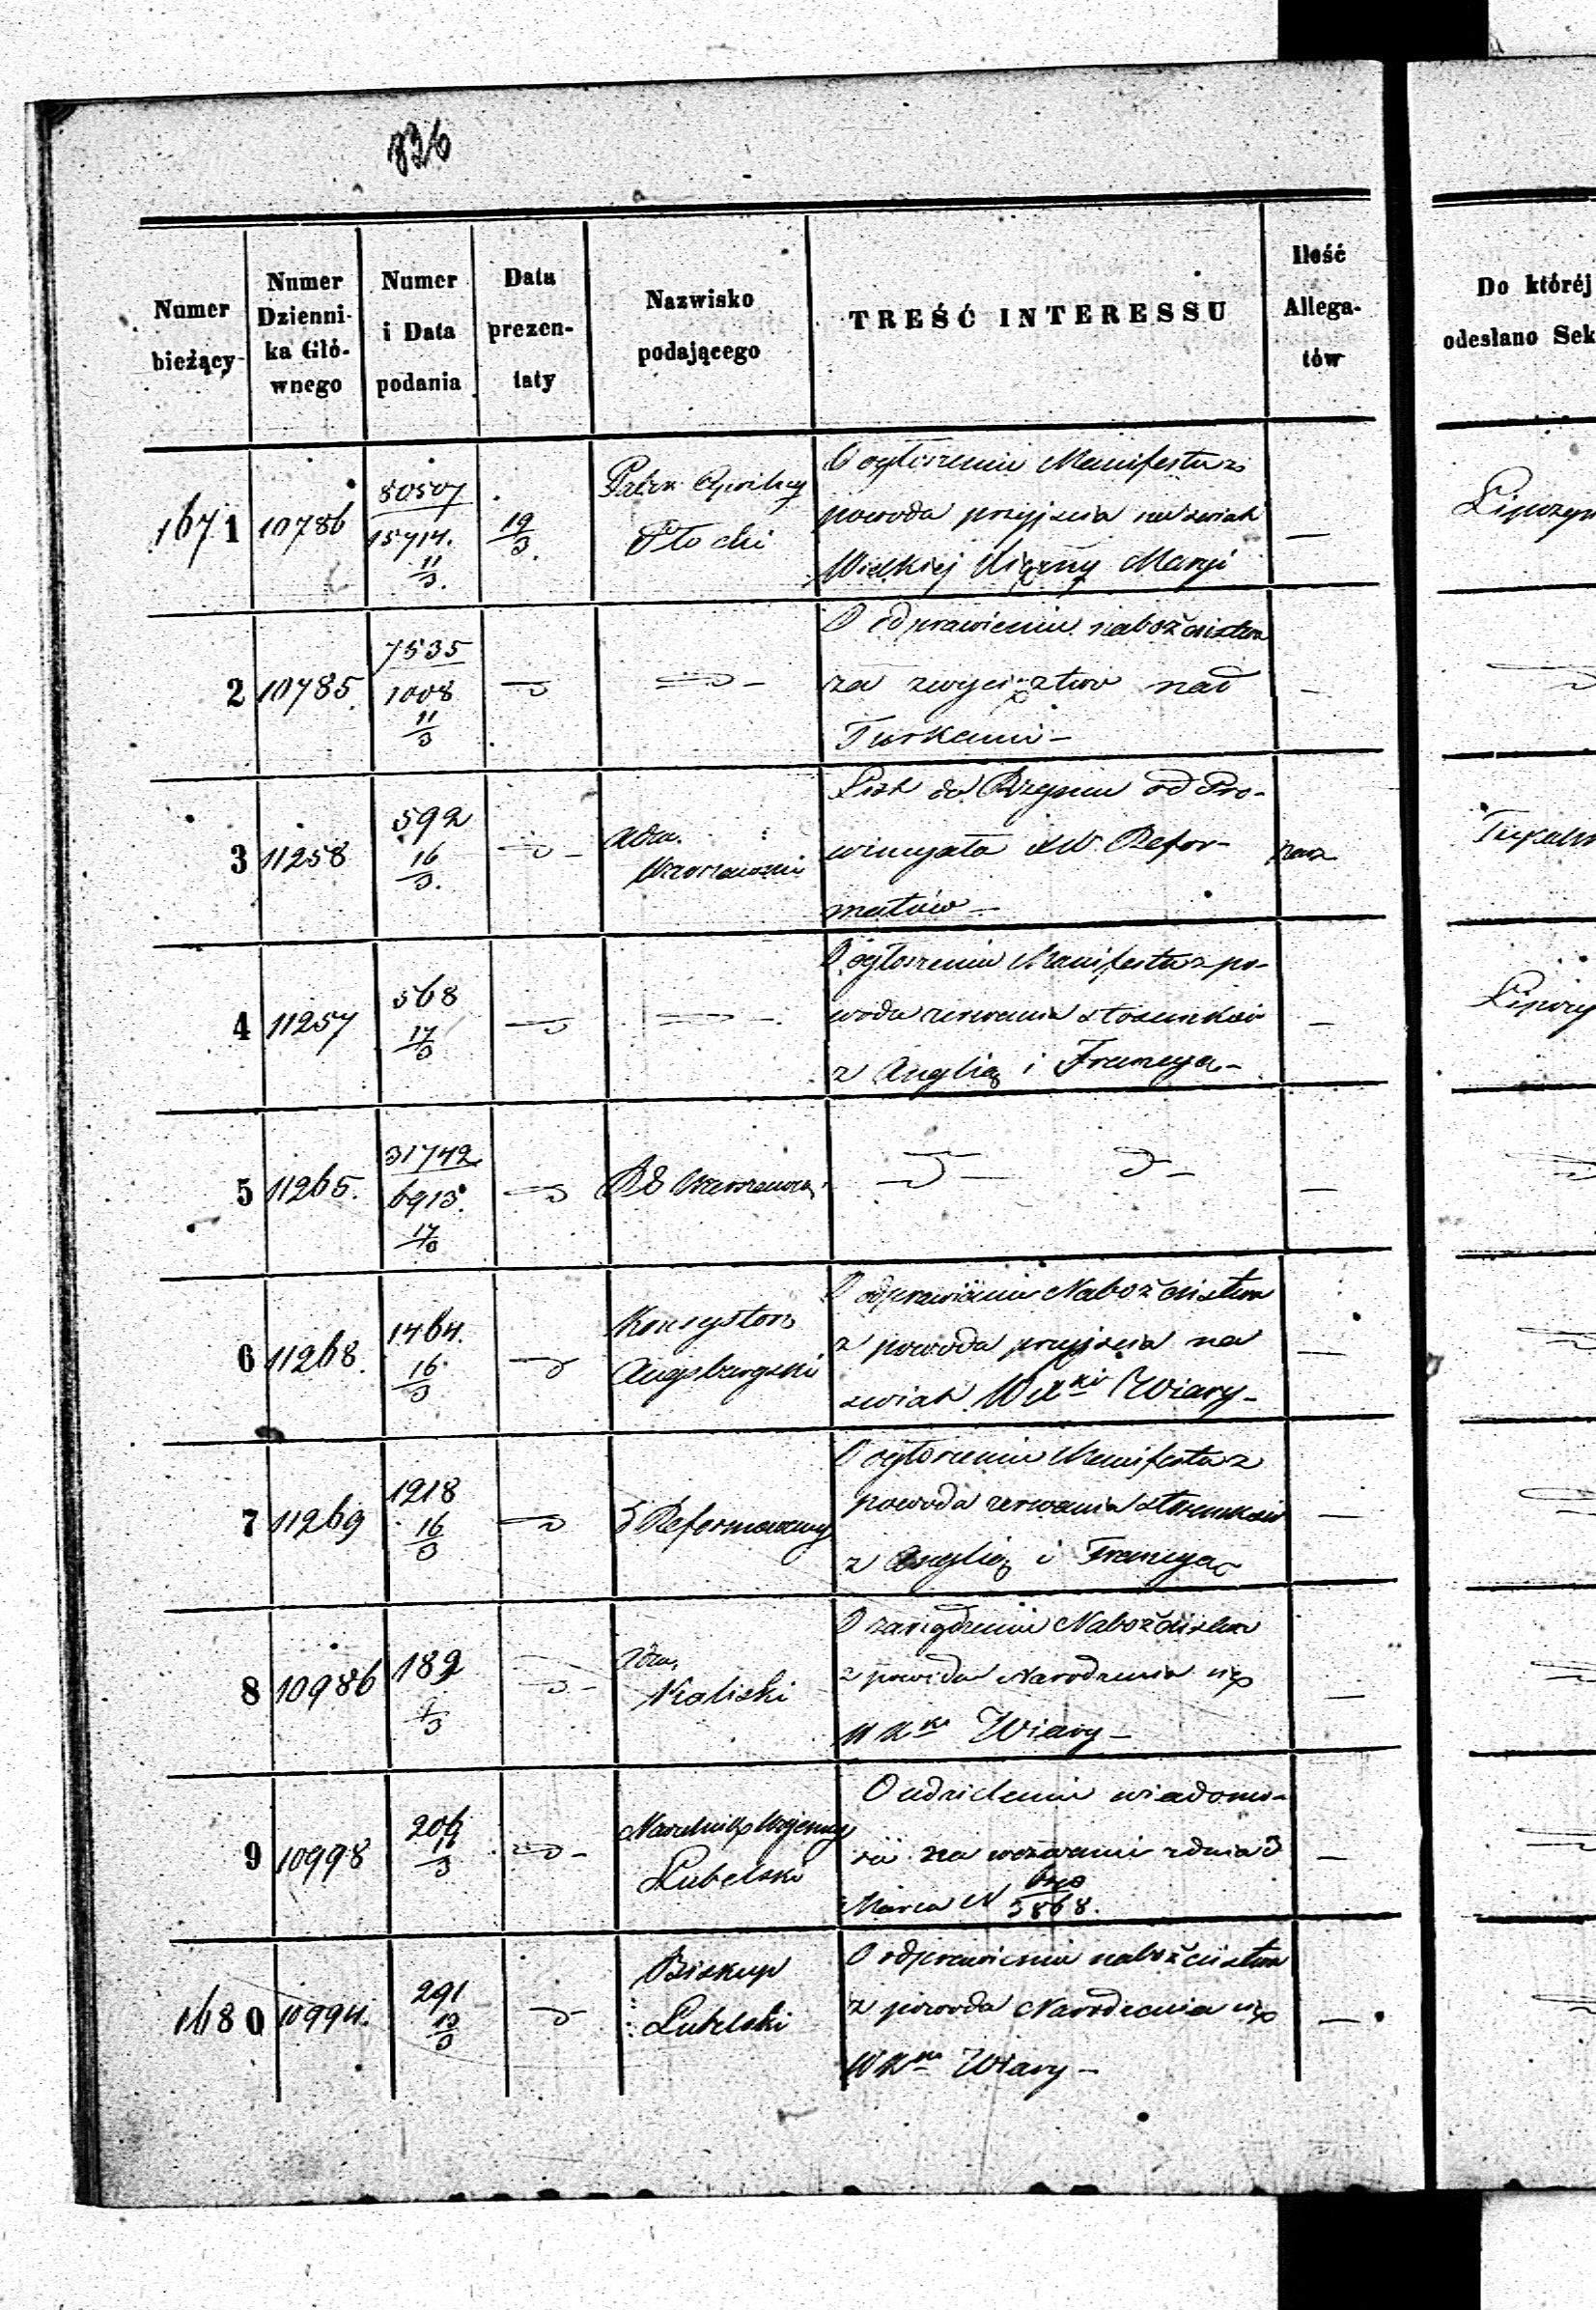 836
Numer bieżący
Numer Dzienni-ka Głó-wnego
Numer i Data podania
Data prezen-taty
Nazwisko podającego
TREŚĆ INTERESSU
Ilość Allega-tów
Do któréj
odesłano Sek
1671 10786 80507
15714. 11/3. 19/3.
Cywilny
Płocki
O ogłoszeniu Manifestu z
powodu przyjścia na świat
Wielkiej Xiężny Maryi
—
2 10785. 7535
1008 11/3
O odprawieniu nabożeństwa
za zwycięztwo nad
Turkami —
—
3 11258 592
16/3.
Adm.
Warszawski
List do Rzymu od Pro-
wincyała XX. Refor-
matów —
4 11257 568
17/3
O ogłoszeniu Manifestu z po-
wodu zerwania stosunków
z Anglią i Francyą —
—
5 11265. 31742
6913. 17/3
RG Warszawski
—
6 11268. 1464.
16/3
Konsystorz
Augsburgski
O odprawieniu Nabożeństwa
z powodu przyjścia na
świat Wiary —
—
7 11269 1218
16/3
Reformowany
O ogłoszeniu Manifestu z
powodu zerwania stosunków
z Anglią i Francyą
—
8 10986 189
Adm.
Kaliski
O zarządzeniu Nabożeństwa
z powodu Narodzenia się
Wiary —
—
9 10998 206
Naczelnik Wojenny
Lubelski
O udzieleniu wiadomo-
ści na wezwanie z dnia 3
Marca N 5868.
—
1680 10994. 291
Biskup
Lubelski
O odprawieniu nabożeństwa
z powodu Narodzenia się
Wiary —
—